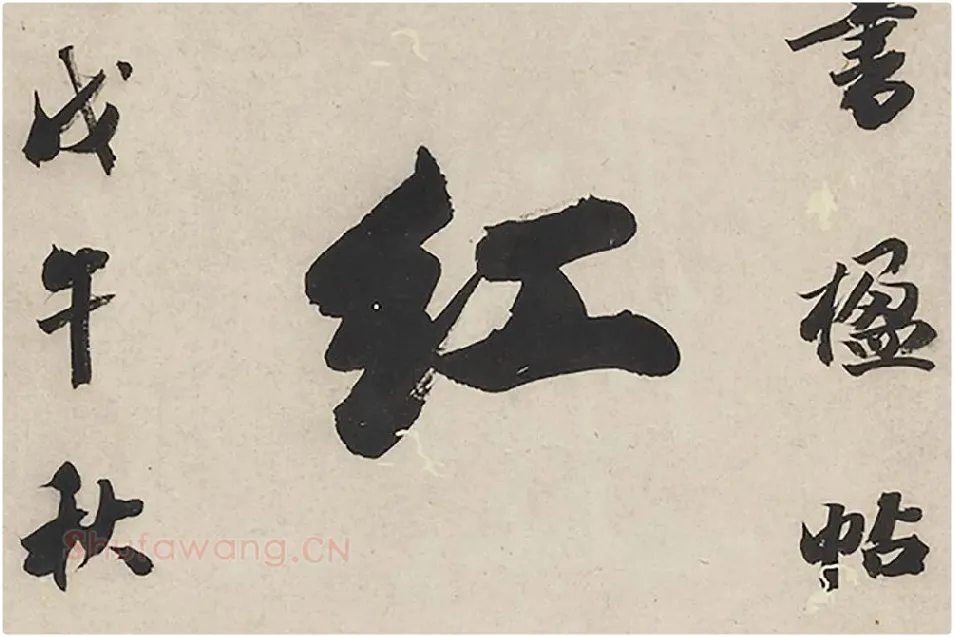 書楹帖
红
戊午秋
Shufawang.CN